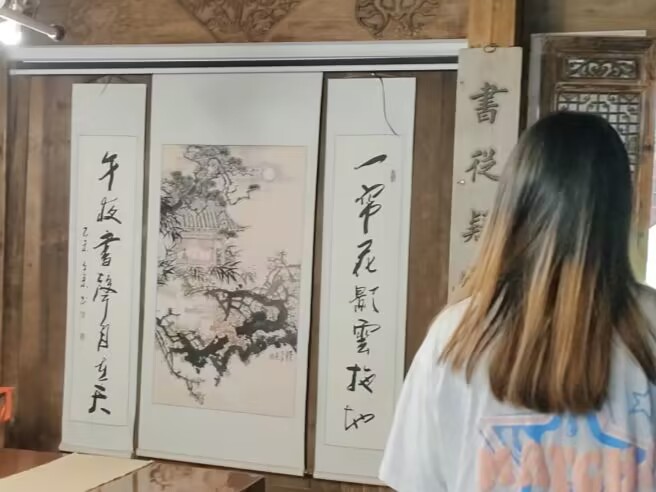 一帘花影雲拖地
半夜書聲月在天
書從
MATCH